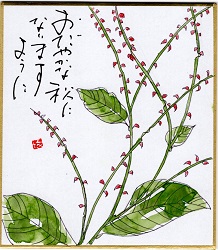 おだやかな秋に
なりますように